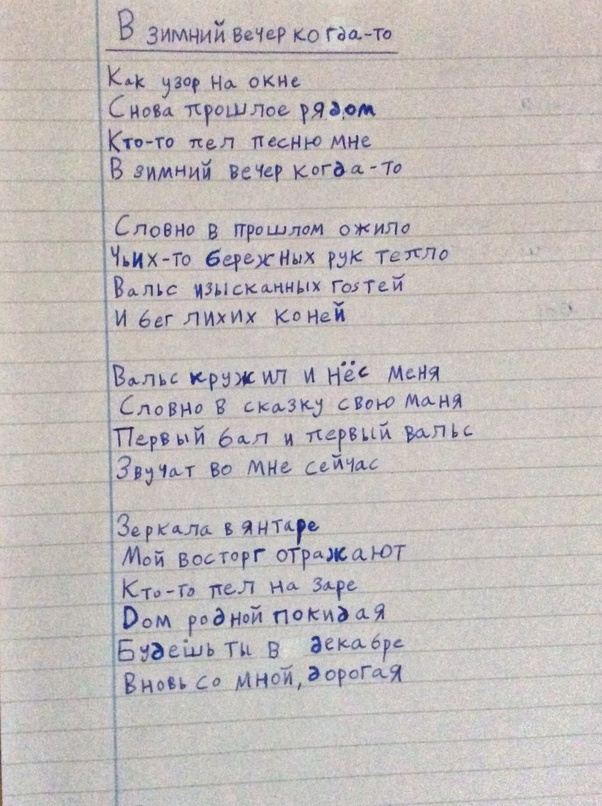 В зимний вечер когда-то
Как узор на окне
Снова прошлое рядом
Кто-то пел песню мне
В зимний вечер когда-то
Словно в прошлом ожило
Чьих-то бережных рук тепло
Вальс изысканных гостей
И бег лихих коней
Вальс кружил и нёс меня
Словно в сказку свою маня
Первый бал и первый вальс
Звучат во мне сейчас
Зеркала в янтаре
Мой восторг отражают
Кто-то пел на заре
Dом родной покидая
Будешь ты в декабре
Вновь со мной, дорогая